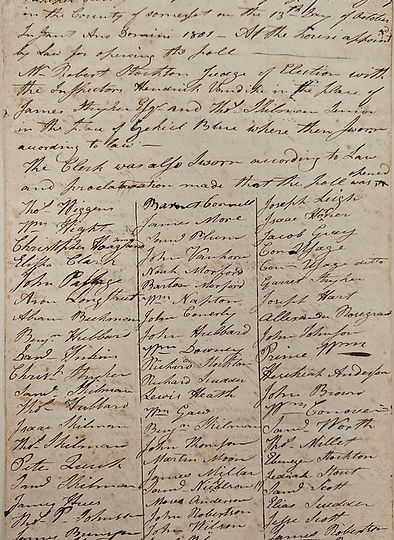 in the County of Somerset on the 13th Day of October
Instant Ano Domini 1801 – At the house appoint
by Law for opening the poll
Mr Robert Stockton Judge of Election with
the Inspectors Hendrick Van Dike in the place of
James Stryker Esqr and Thos Skilman Junior
in the place of Ezekiel Blue where then Sworn
according to Law –
The Clerk was also Sworn according to Law
and proclamation made that the poll was opened
Thos Wiggens
Wm Hight
Christopher
Elisha Clark
John
Aron Longstreet
Abram Buckman
Benjn Hubbard
Danl
Christr Stryker
Saml Skilman
Thos Hubbard
Isaac Skilman
Thos Skilman
Pete Quick
Jacob Skilman
James Hues
Thos P Johnson
James
Barnt Connell
James More
Saml Blum
John Vanhorn
Noah Morford
Barlow Morford
Wm Napton
John Conerly
John Hubbard
Wm Downie
Richard Stockton
Richard Scudder
Lewis Heath
Wm Gaw
Benjn Skilman
John Thomson
Martin Moon
James Millar
David Nickleson
Moses Anderson
John Robertson
John Wilson
Joseph Leigh
Isaac
Jacob Gray
Con Updyke
Con Updyke ditto
Garret Stryker
Joseph Hart
Alexander
John Johnson
Prince
Hezekiah Anderson
John Brown
Wm Conover
Saml Worth
Thos Millet
Ebenezr Stockton
Zedekiah Stout
Saml Scott
Elias Scudder
Jesse Scott
James Robertson